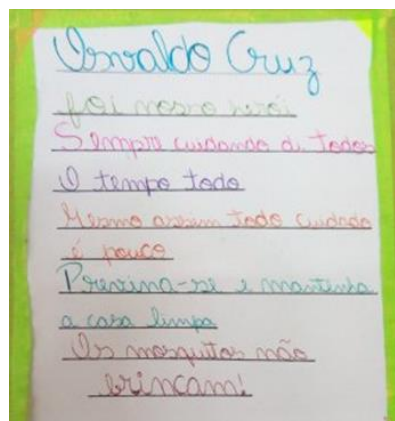 Osvaldo Cruz
foi nosso herói
Sempre cuidando di todos
O tempo todo
Mesmo assim todo cuidado
é pouco
Previna-se e mantenha
a casa limpa
Os mosquitos não
brincam!